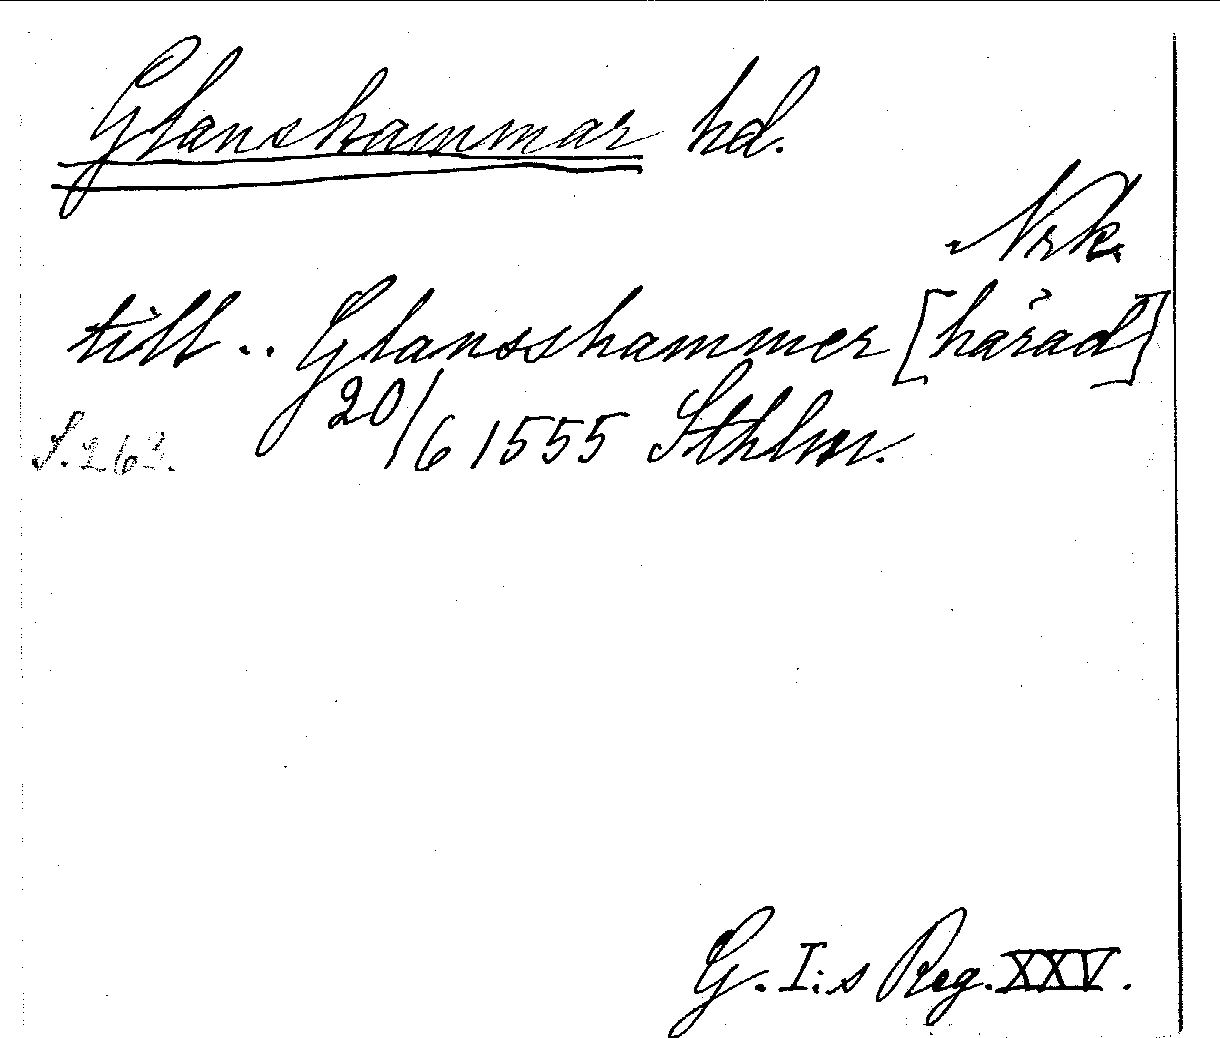 Glanshammar hd.
Nrk.
till .. Glansshammer [härad]
20/6 1555 Sthlm.
S. 263.
G. I:s Reg. XXV.